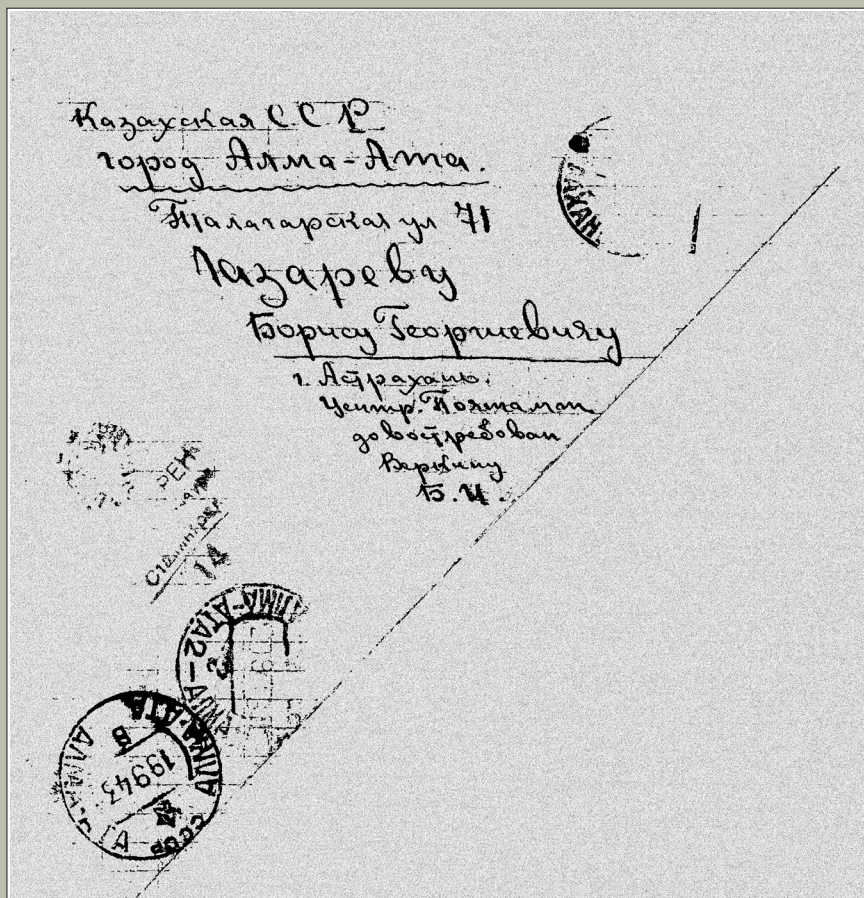 Казахская ССР
город Алма-Ата.
Талгарская ул 71
Лазареву
Борису Георгиевичу
г. Астрахань.
Центр. Почтамт
довостребован
Веркину
Б. И.
АХАН
РЕН
14
АЛМА-АТА2
АЛМА-АТА
АЛМА-АТА
В
19943
СССР